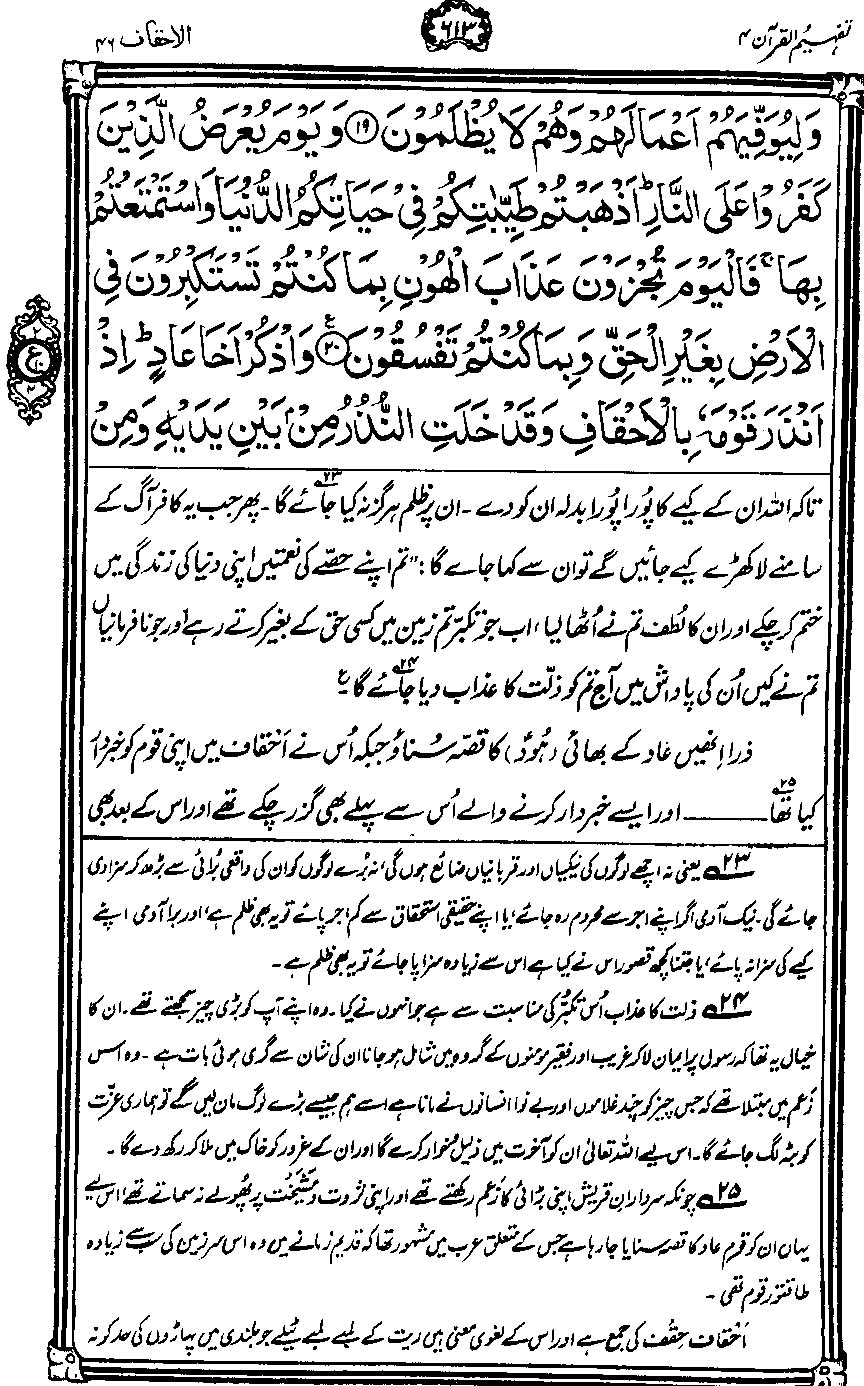 تفہیم القرآن ۴
۶۱۳
الاحقاف ۴۶
وَلِيُوَفِّيَهُمْ اَعْمَالَهُمْ وَهُمْ لَا يُظْلَمُوْنَ ﴿۱۹﴾ وَيَوْمَ يُعْرَضُ الَّذِيْنَ
كَفَرُوْا عَلَى النَّارِ ؕ اَذْهَبْتُمْ طَيِّبٰتِكُمْ فِيْ حَيَاتِكُمُ الدُّنْيَا وَاسْتَمْتَعْتُمْ
بِهَا ۚ فَالْيَوْمَ تُجْزَوْنَ عَذَابَ الْهُوْنِ بِمَا كُنْتُمْ تَسْتَكْبِرُوْنَ فِي
الْاَرْضِ بِغَيْرِ الْحَقِّ وَبِمَا كُنْتُمْ تَفْسُقُوْنَ ﴿۲۰﴾ ع وَاذْكُرْ اَخَا عَادٍ ؕ اِذْ
اَنْذَرَ قَوْمَهٗ بِالْاَحْقَافِ وَقَدْ خَلَتِ النُّذُرُ مِنْۢ بَيْنِ يَدَيْهِ وَمِنْ
۲
ع
۲
تاکہ اللہ ان کے کیے کا پُورا پُورا بدلہ ان کو دے۔ ان پر ظلم ہرگز نہ کیا جائے گا۲۳۔ پھر جب یہ کافر آگ کے
سامنے لا کھڑے کیے جائیں گے تو ان سے کہا جائے گا: ”تم اپنے حصّے کی نعمتیں اپنی دنیا کی زندگی میں
ختم کر چکے اور ان کا لُطف تم نے اُٹھا لیا، اب جو تکبّر تم زمین میں کسی حق کے بغیر کرتے رہے اور جو نافرمانیاں
تم نے کیں اُن کی پاداش میں آج تم کو ذلّت کا عذاب دیا جائے گا۲۴۔ ع
ذرا اِنھیں عاد کے بھائی (ہُودؑ) کا قصّہ سُناؤ جبکہ اُس نے اَحْقاف میں اپنی قوم کو خبردار
کیا تھا۲۵ ـــــــ اور ایسے خبردار کرنے والے اُس سے پہلے بھی گزر چکے تھے اور اس کے بعد بھی
۲۳ یعنی نہ اچھے لوگوں کی نیکیاں اور قربانیاں ضائع ہوں گی، نہ بُرے لوگوں کو ان کی واقعی بُرائی سے بڑھ کر سزا دی
جائے گی۔ نیک آدمی اگر اپنے اجر سے محروم رہ جائے، یا اپنے حقیقی استحقاق سے کم اجر پائے تو یہ بھی ظلم ہے، اور برا آدمی اپنے
کیے کی سزا نہ پائے، یا جتنا کچھ قصور اس نے کیا ہے اس سے زیادہ سزا پا جائے تو یہ بھی ظلم ہے۔
۲۴ ذلت کا عذاب اُس تکبُّر کی مناسبت سے ہے جو انہوں نے کیا۔ وہ اپنے آپ کو بڑی چیز سمجھتے تھے۔ ان کا
خیال یہ تھا کہ رسول پر ایمان لا کر غریب اور فقیر مومنوں کے گروہ میں شامل ہو جانا ان کی شان سے گری ہوئی بات ہے۔ وہ اس
زُعم میں مبتلا تھے کہ جس چیز کو چند غلاموں اور بے نوا انسانوں نے مانا ہے اسے ہم جیسے بڑے لوگ مان لیں گے تو ہماری عزّت
کو بٹہ لگ جائے گا۔ اس لیے اللہ تعالیٰ ان کو آخرت میں ذلیل و خوار کرے گا اور ان کے غرور کو خاک میں ملا کر رکھ دے گا۔
۲۵ چونکہ سردارانِ قریش اپنی بڑائی کا زُعم رکھتے تھے اور اپنی ثروت و مَشِیخَت پر پھُولے نہ سماتے تھے، اس لیے
یہاں ان کو قومِ عاد کا قصہ سنایا جا رہا ہے جس کے متعلق عرب میں مشہور تھا کہ قدیم زمانے میں وہ اس سرزمین کی سب سے زیادہ
طاقتور قوم تھی۔
اَحْقاف حِقْف کی جمع ہے اور اس کے لغوی معنی ہیں ریت کے لمبے لمبے ٹیلے جو بلندی میں پہاڑوں کی حد کو نہ